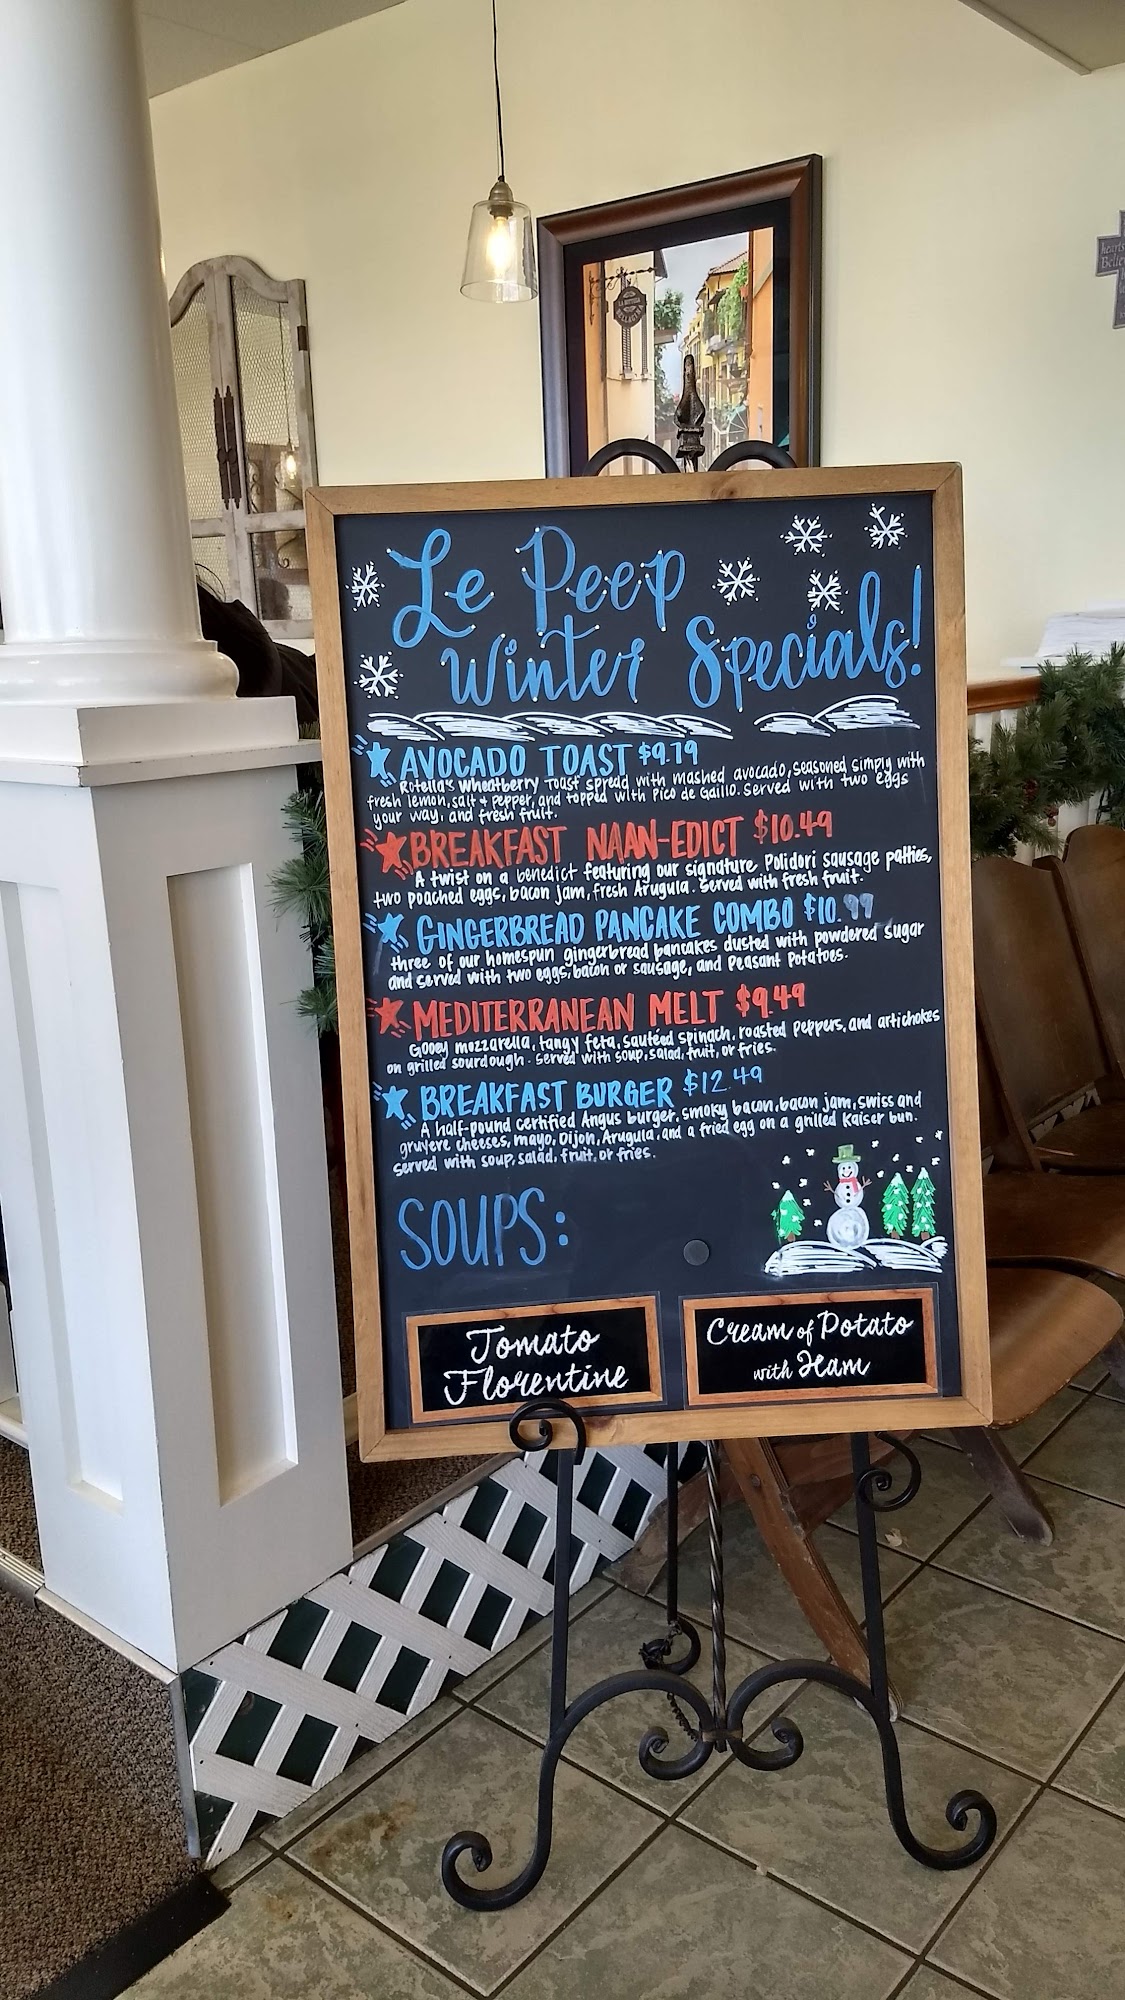 Le Peep
Winter Specials!
AVOCADO TOAST $9.79
Rotella's Wheatberry Toast spread with mashed avocado, seasoned simply with
fresh lemon, salt & pepper, and topped with Pico de Gallo. Served with two eggs
your way, and fresh fruit.
BREAKFAST NAAN-EDICT $10.49
A twist on a benedict featuring our signature Polidori sausage patties,
two poached eggs, bacon jam, fresh Arugula. Served with fresh fruit.
GINGERBREAD PANCAKE COMBO $10.99
three of our homespun gingerbread pancakes dusted with powdered sugar
and served with two eggs, bacon or sausage, and Peasant Potatoes.
MEDITERRANEAN MELT $9.49
Gooey mozzarella, tangy feta, sautéed spinach, roasted peppers, and artichokes
on grilled sourdough. Served with soup, salad, fruit, or fries.
BREAKFAST BURGER $12.49
A half-pound certified Angus burger, smoky bacon, bacon jam, swiss and
gruyere cheeses, mayo, Dijon, Arugula, and a fried egg on a grilled Kaiser bun.
served with soup, salad, fruit, or fries.
SOUPS:
Tomato
Florentine
Cream of Potato
with Ham